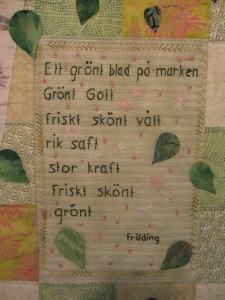 Ett grönt blad på marken
Grönt Gott
friskt skönt vått
rik saft
stor kraft
Friskt skönt
grönt
Fröding